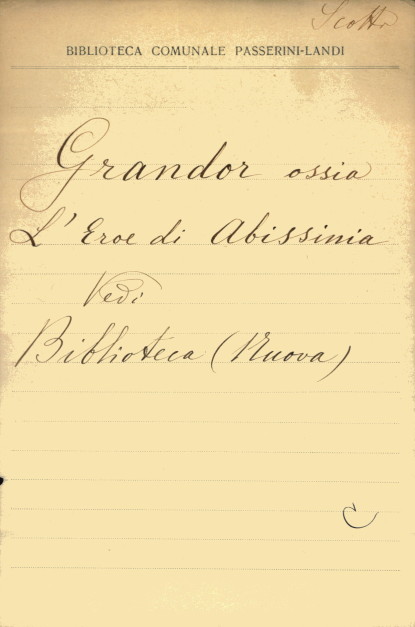 Scotti
BIBLIOTECA COMUNALE PASSERINI-LANDI
Grandor ossia
L'Eroe di Abissinia
Vedi
Biblioteca (Nuova)
C